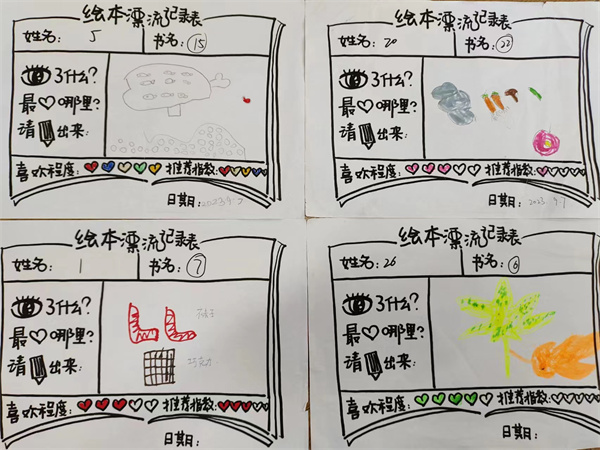 绘本漂流记录表
姓名: 5 书名: 15
了什么?
最 哪里?
请 出来:
喜欢程度: 推荐指数:
日期: 2023.9.7
绘本漂流记录表
姓名: 20 书名: 22
了什么?
最 哪里?
请 出来:
喜欢程度: 推荐指数:
日期: 2023.9.7
绘本漂流记录表
姓名: 1 书名: 7
了什么?
最 哪里?
请 出来:
喜欢程度: 推荐指数:
日期:
绘本漂流记录表
姓名: 26 书名: 6
了什么?
最 哪里?
请 出来:
喜欢程度: 推荐指数:
日期: